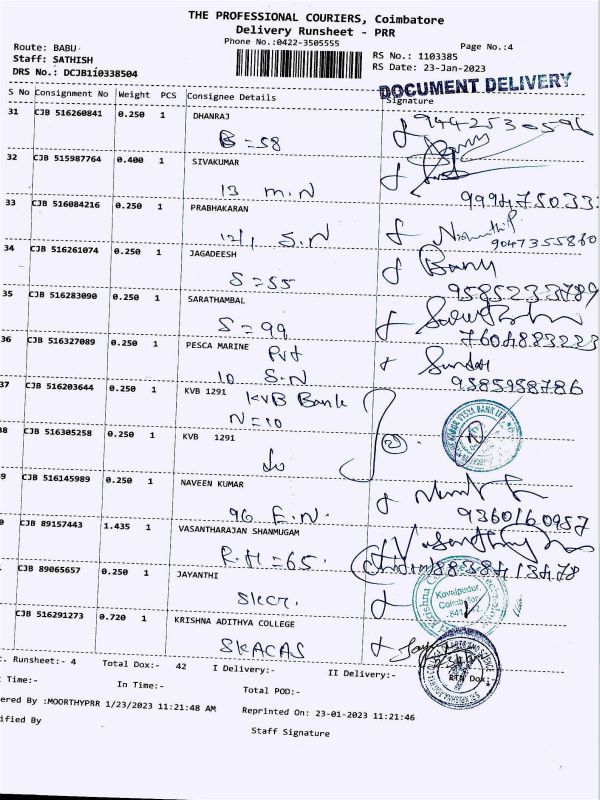 THE PROFESSIONAL COURIERS, Coimbatore
Delivery Runsheet - PRR
Phone No.:0422-3505555
Page No.:4
Route: BABU
Staff: SATHISH
DRS No.: DCJB110338504
RS No.: 1103385
RS Date: 23-Jan-2023
DOCUMENT DELIVERY
S No Consignment No Weight PCS Consignee Details Signature
31 CJB 516260841 0.250 1 DHANRAJ
B = 58
32 CJB 515987764 0.400 1 SIVAKUMAR
13 M.N
33 CJB 516084216 0.250 1 PRABHAKARAN
12/1 S.N
9047355860
34 CJB 516261074 0.250 1 JAGADEESH
S = 55 Banu
9585233789
35 CJB 516283090 0.250 1 SARATHAMBAL
S = 99
7604883223
36 CJB 516327089 0.250 1 PESCA MARINE
Pvt
10 S.N
9585958786
37 CJB 516203644 0.250 1 KVB 1291 KVB Bank
N = 10
38 CJB 516305258 0.250 1 KVB 1291
9 CJB 516145989 0.250 1 NAVEEN KUMAR
96 E.N.
9360160987
0 CJB 89157443 1.435 1 VASANTHARAJAN SHANMUGAM
R.H = 65.
1 CJB 89065657 0.250 1 JAYANTHI
Kovaipudur,
Coimbatore
CJB 516291273 0.720 1 KRISHNA ADITHYA COLLEGE
SKACAS
. Runsheet:- 4 Total Dox:- 42 I Delivery:- II Delivery:- RTN Dox:-
Time:- In Time:- Total POD:-
ered By :MOORTHYPRR 1/23/2023 11:21:48 AM Reprinted On: 23-01-2023 11:21:46
ified By Staff Signature